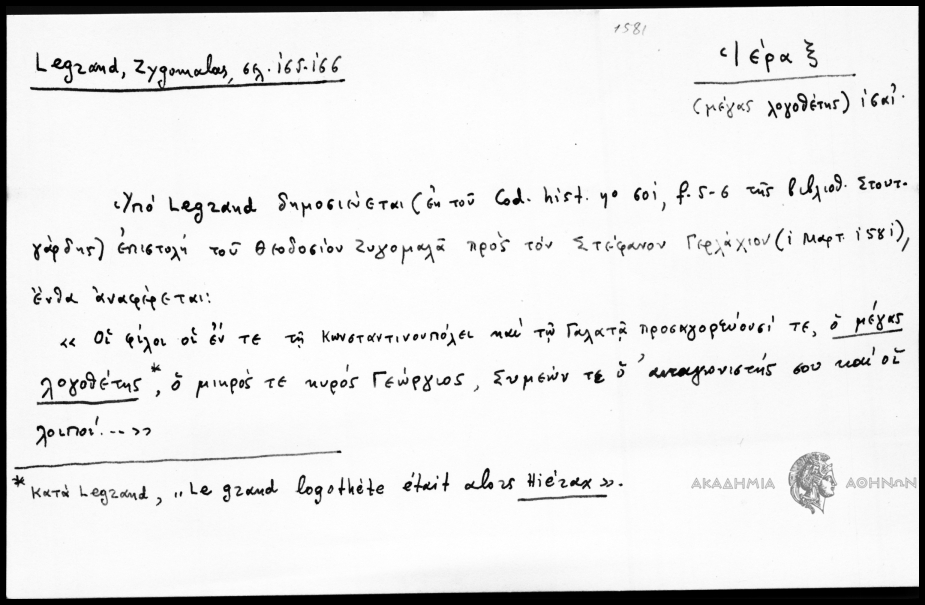 1581
Legrand, Zygomalas, σελ. 165-166
Ἱέραξ
(μέγας λογοθέτης) 1581.
Ὑπό Legrand δημοσιεύεται (ἐκ τοῦ Cod. hist. no 601, f. 5-6 τῆς βιβλιοθ. Στουτ-
γάρδης) ἐπιστολή τοῦ Θεοδοσίου Ζυγομαλᾶ πρός τόν Στέφανον Γερλάχιον (1 Μαρτ. 1581),
ἔνθα ἀναφέρεται:
« Οἱ φίλοι οἱ ἔν τε τῇ Κωνσταντινουπόλει καί τῷ Γαλατᾷ προσαγορεύουσί τε, ὁ μέγας
λογοθέτης*, ὁ μικρός τε κυρός Γεώργιος, Συμεών τε ὁ ἀνταγωνιστής σου καί οἱ
λοιποί...»
* Κατά Legrand, „Le grand logothète était alors Hiérax ».
ΑΚΑΔΗΜΙΑ ΑΘΗΝΩΝ